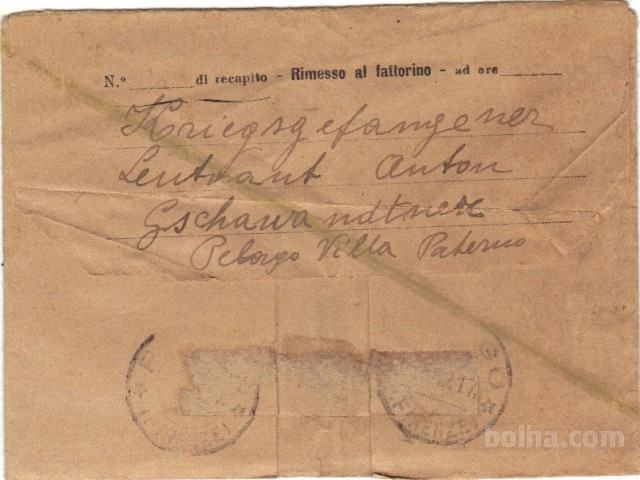 N.º ________ di recapito - Rimesso al fattorino - ad ore ________
Kriegsgefangener
Leutnant Anton
Gschawandtner
Pelago Villa Paterno
(FIRENZE)
(FIRENZE)
bolha.com